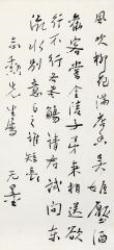 風吹柳花滿店香吳姬壓酒
勸客嘗金陵子弟來相送欲
行不行各盡觴請君試問東
流水別意與之誰短長
先生